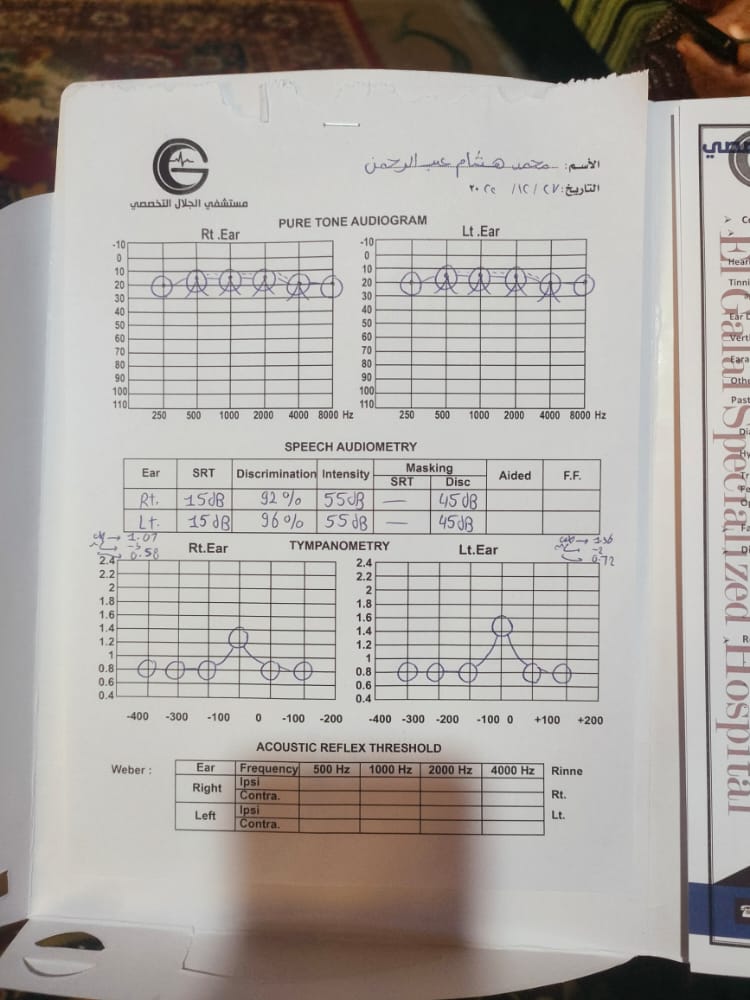 مستشفي الجلال التخصصي
الأسم: محمد هشام عبد الرحمن
التاريخ: ٢٧ / ١٢ / ٢٠
PURE TONE AUDIOGRAM
Rt .Ear
Lt .Ear
-10 0 10 20 30 40 50 60 70 80 90 100 110
250 500 1000 2000 4000 8000 Hz
-10 0 10 20 30 40 50 60 70 80 90 100 110
250 500 1000 2000 4000 8000 Hz
SPEECH AUDIOMETRY
Ear SRT Discrimination Intensity Masking Aided F.F.
SRT Disc
Rt. 15dB 92% 55dB — 45dB
Lt. 15dB 96% 55dB — 45dB
→ 1.07
→ -3
→ 0.58
→ 1.36
→ -2
→ 0.72
Rt.Ear TYMPANOMETRY Lt.Ear
2.4 2.2 2 1.8 1.6 1.4 1.2 1 0.8 0.6 0.4
-400 -300 -100 0 -100 -200
2.4 2.2 2 1.8 1.6 1.4 1.2 1 0.8 0.6 0.4
-400 -300 -200 -100 0 +100 +200
ACOUSTIC REFLEX THRESHOLD
Weber :
Ear Frequency 500 Hz 1000 Hz 2000 Hz 4000 Hz Rinne
Right Ipsi
Contra. Rt.
Left Ipsi Lt.
Contra.
El Galal Specialized Hospital